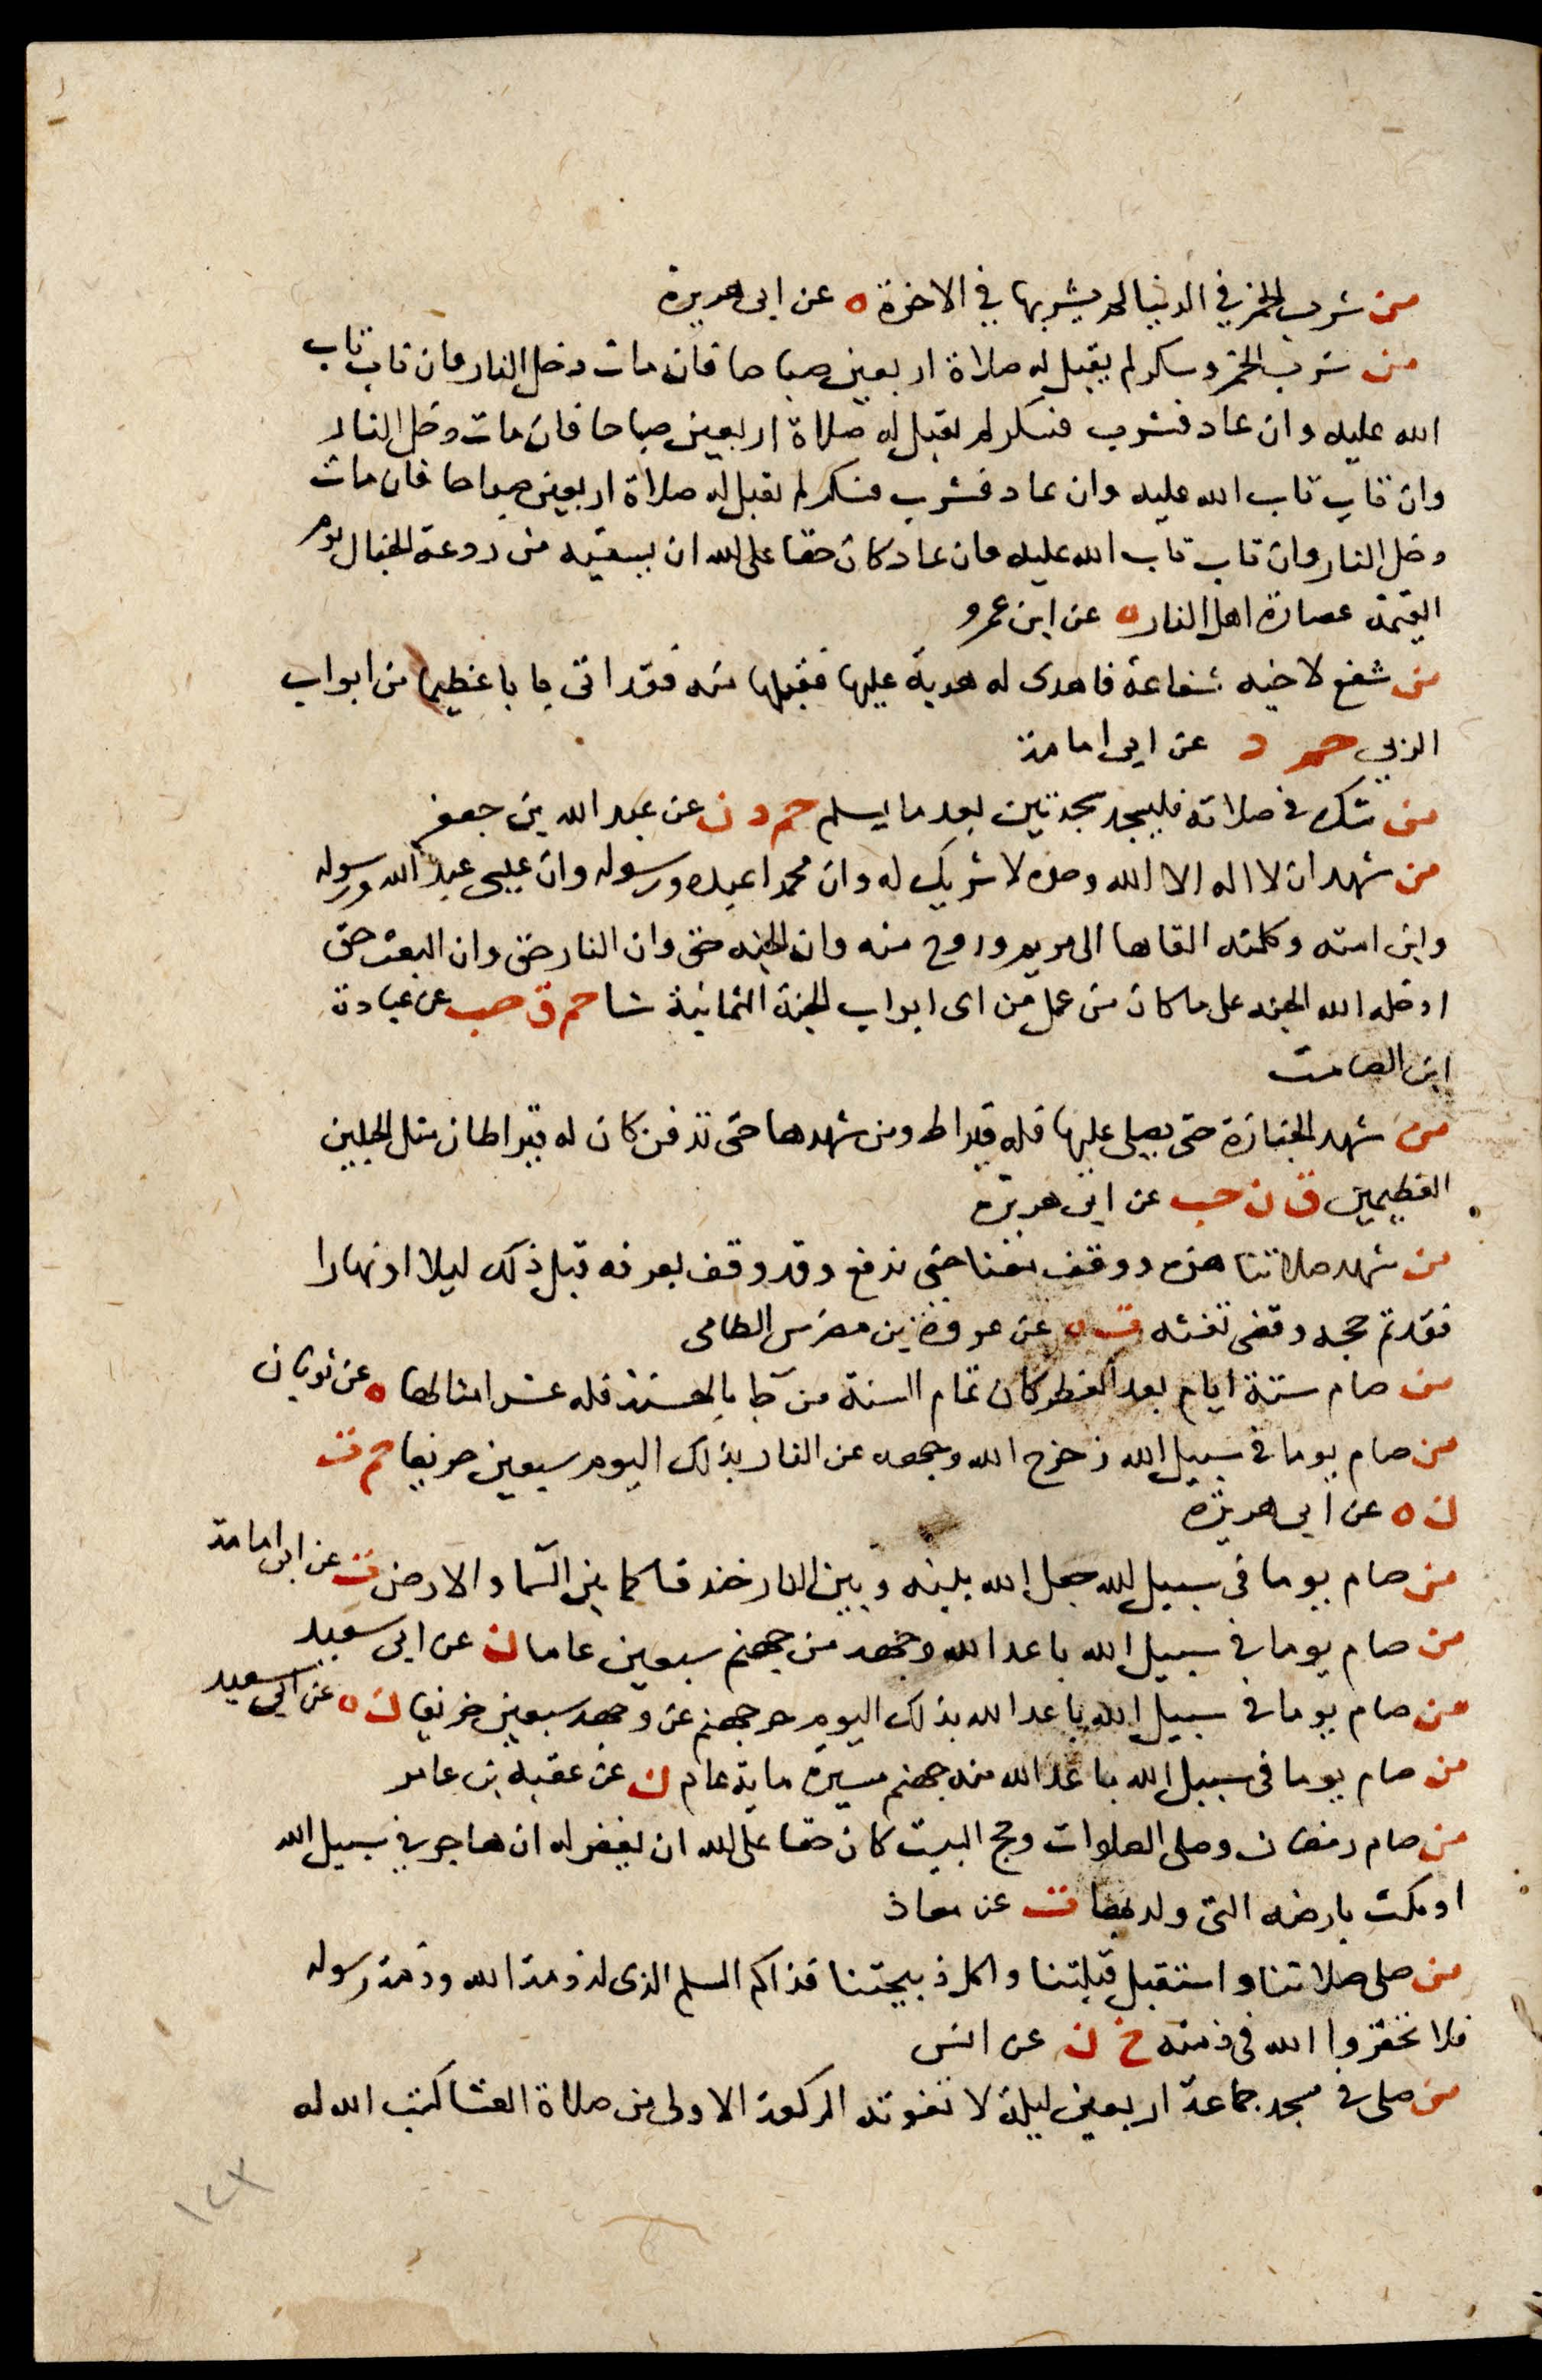 من شرب الخمر في الدنيا لم يشربها في الاخرة ه عن ابى هريرة
من شرب الخمر وسكر لم يقبل له صلاة اربعين صباحا فان مات دخل النار فان تاب تاب
الله عليه وان عاد فشرب فسكر لم تقبل له صلاة اربعين صباحا فان مات دخل النار
وان تاب تاب الله عليه وان عاد فشرب فسكر لم تقبل له صلاة اربعين صباحا فان مات
دخل النار وان تاب تاب الله عليه وان عاد كان حقا على الله ان يسقيه من ردغة الخبال يوم
القيمة عصارة اهل النار ه عن ابن عمرو
من شفع لاخيه شفاعة فاهدى له هدية عليها فقبلها منه فقد اتى بابا عظيما من ابواب
الربى حم د عن ابى امامة
من شك في صلاته فليسجد سجدتين بعد ما يسلم حم د ن عن عبد الله بن جعفر
من شهد ان لا اله الا الله وحده لا شريك له وان محمدا عبده ورسوله وان عيسى عبد الله ورسوله
وابن امته وكلمته القاها الى مريم وروح منه وان الجنه حق وان النار حق وان البعث حق
ادخله الله الجنه على ما كان من عمل من اى ابواب الجنة الثمانية شا حم ق حب عن عبادة
ابن الصامت
من شهد الجنازة حتى يصلى عليها فله قيراط ومن شهدها حتى تدفن كان له قيراطان مثل الجبلين
العظيمين ق ن حب عن ابى هريرة
من شهد صلاتنا هذه ووقف معنا حتى ندفع وقد وقف بعرفه قبل ذلك ليلا او نهارا
فقد تم حجه وقضى تفثه ت ه عن عروة بن مضرس الطامى
من صام ستة ايام بعد الفطر كان تمام السنة من جا بالحسنة فله عشر امثالها ه عن ثوبان
من صام يوما في سبيل الله زحزح الله وجهه عن النار بذلك اليوم سبعين خريفا حم ت
ن ه عن ابى هريرة
من صام يوما في سبيل الله جعل الله بينه وبين النار خندقا كما بين السما والارض ت عن ابى امامة
من صام يوما في سبيل الله باعد الله وجهه من جهنم سبعين عاما ن عن ابى سعيد
من صام يوما في سبيل الله باعد الله بذلك اليوم حر جهنم عن وجهه سبعين خريفا ن ه عن ابى سعيد
من صام يوما في سبيل الله باعد الله منه جهنم مسيرة ماية عام ن عن عقبة بن عامر
من صام رمضان وصلى الصلوات وحج البيت كان حقا على الله ان يغفر له ان هاجر في سبيل الله
او مكث بارضه التى ولد بها ت عن معاذ
من صلى صلاتنا واستقبل قبلتنا واكل ذبيحتنا فذاكم المسلم الذى له ذمة الله وذمة رسوله
فلا تخفروا الله في ذمته خ ن عن انس
من صلى في مسجد جماعة اربعين ليلة لا تفوته الركعة الاولى من صلاة العشا كتب الله له